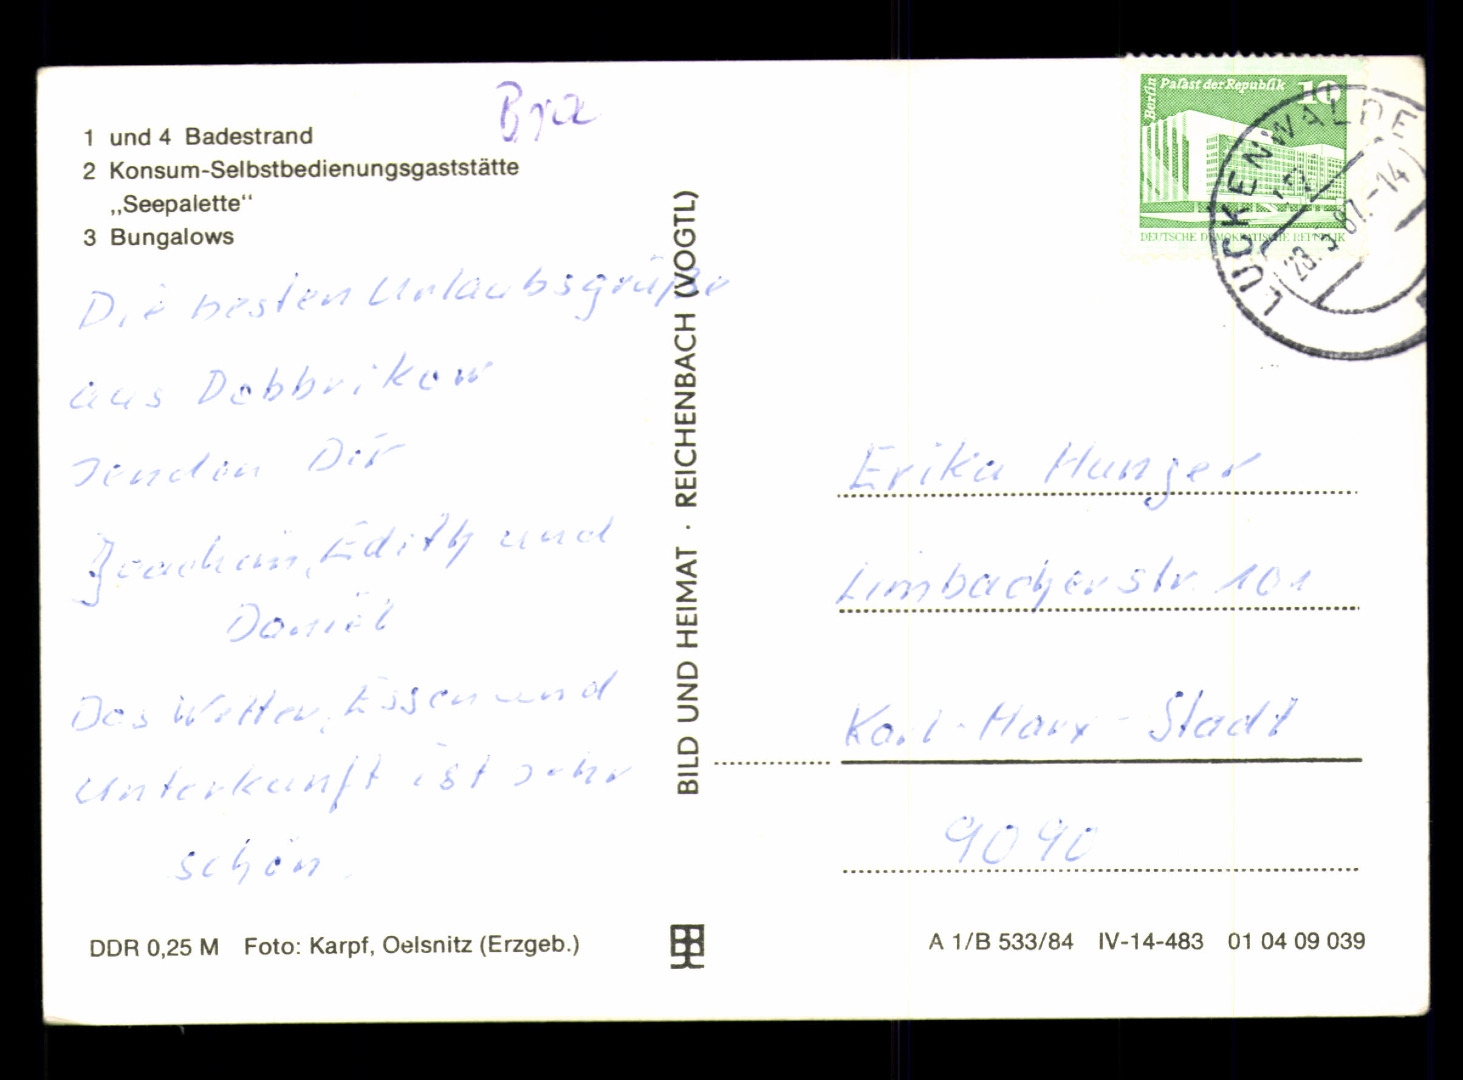 Bra
1 und 4 Badestrand
2 Konsum-Selbstbedienungsgaststätte
„Seepalette“
3 Bungalows
Die besten Urlaubsgrüße
aus Dobbrikow
senden Dir
Joachim, Edith und
Daniel
Das Wetter, Essen und
Unterkunft ist sehr
schön.
DDR 0,25 M Foto: Karpf, Oelsnitz (Erzgeb.)
BILD UND HEIMAT · REICHENBACH (VOGTL)
Berlin
Palast der Republik
10
DEUTSCHE DEMOKRATISCHE REPUBLIK
LUCKENWALDE
28.3.87.-14
Erika Hunger
Limbacherstr. 101
Karl-Marx-Stadt
9090
A 1/B 533/84 IV-14-483 01 04 09 039